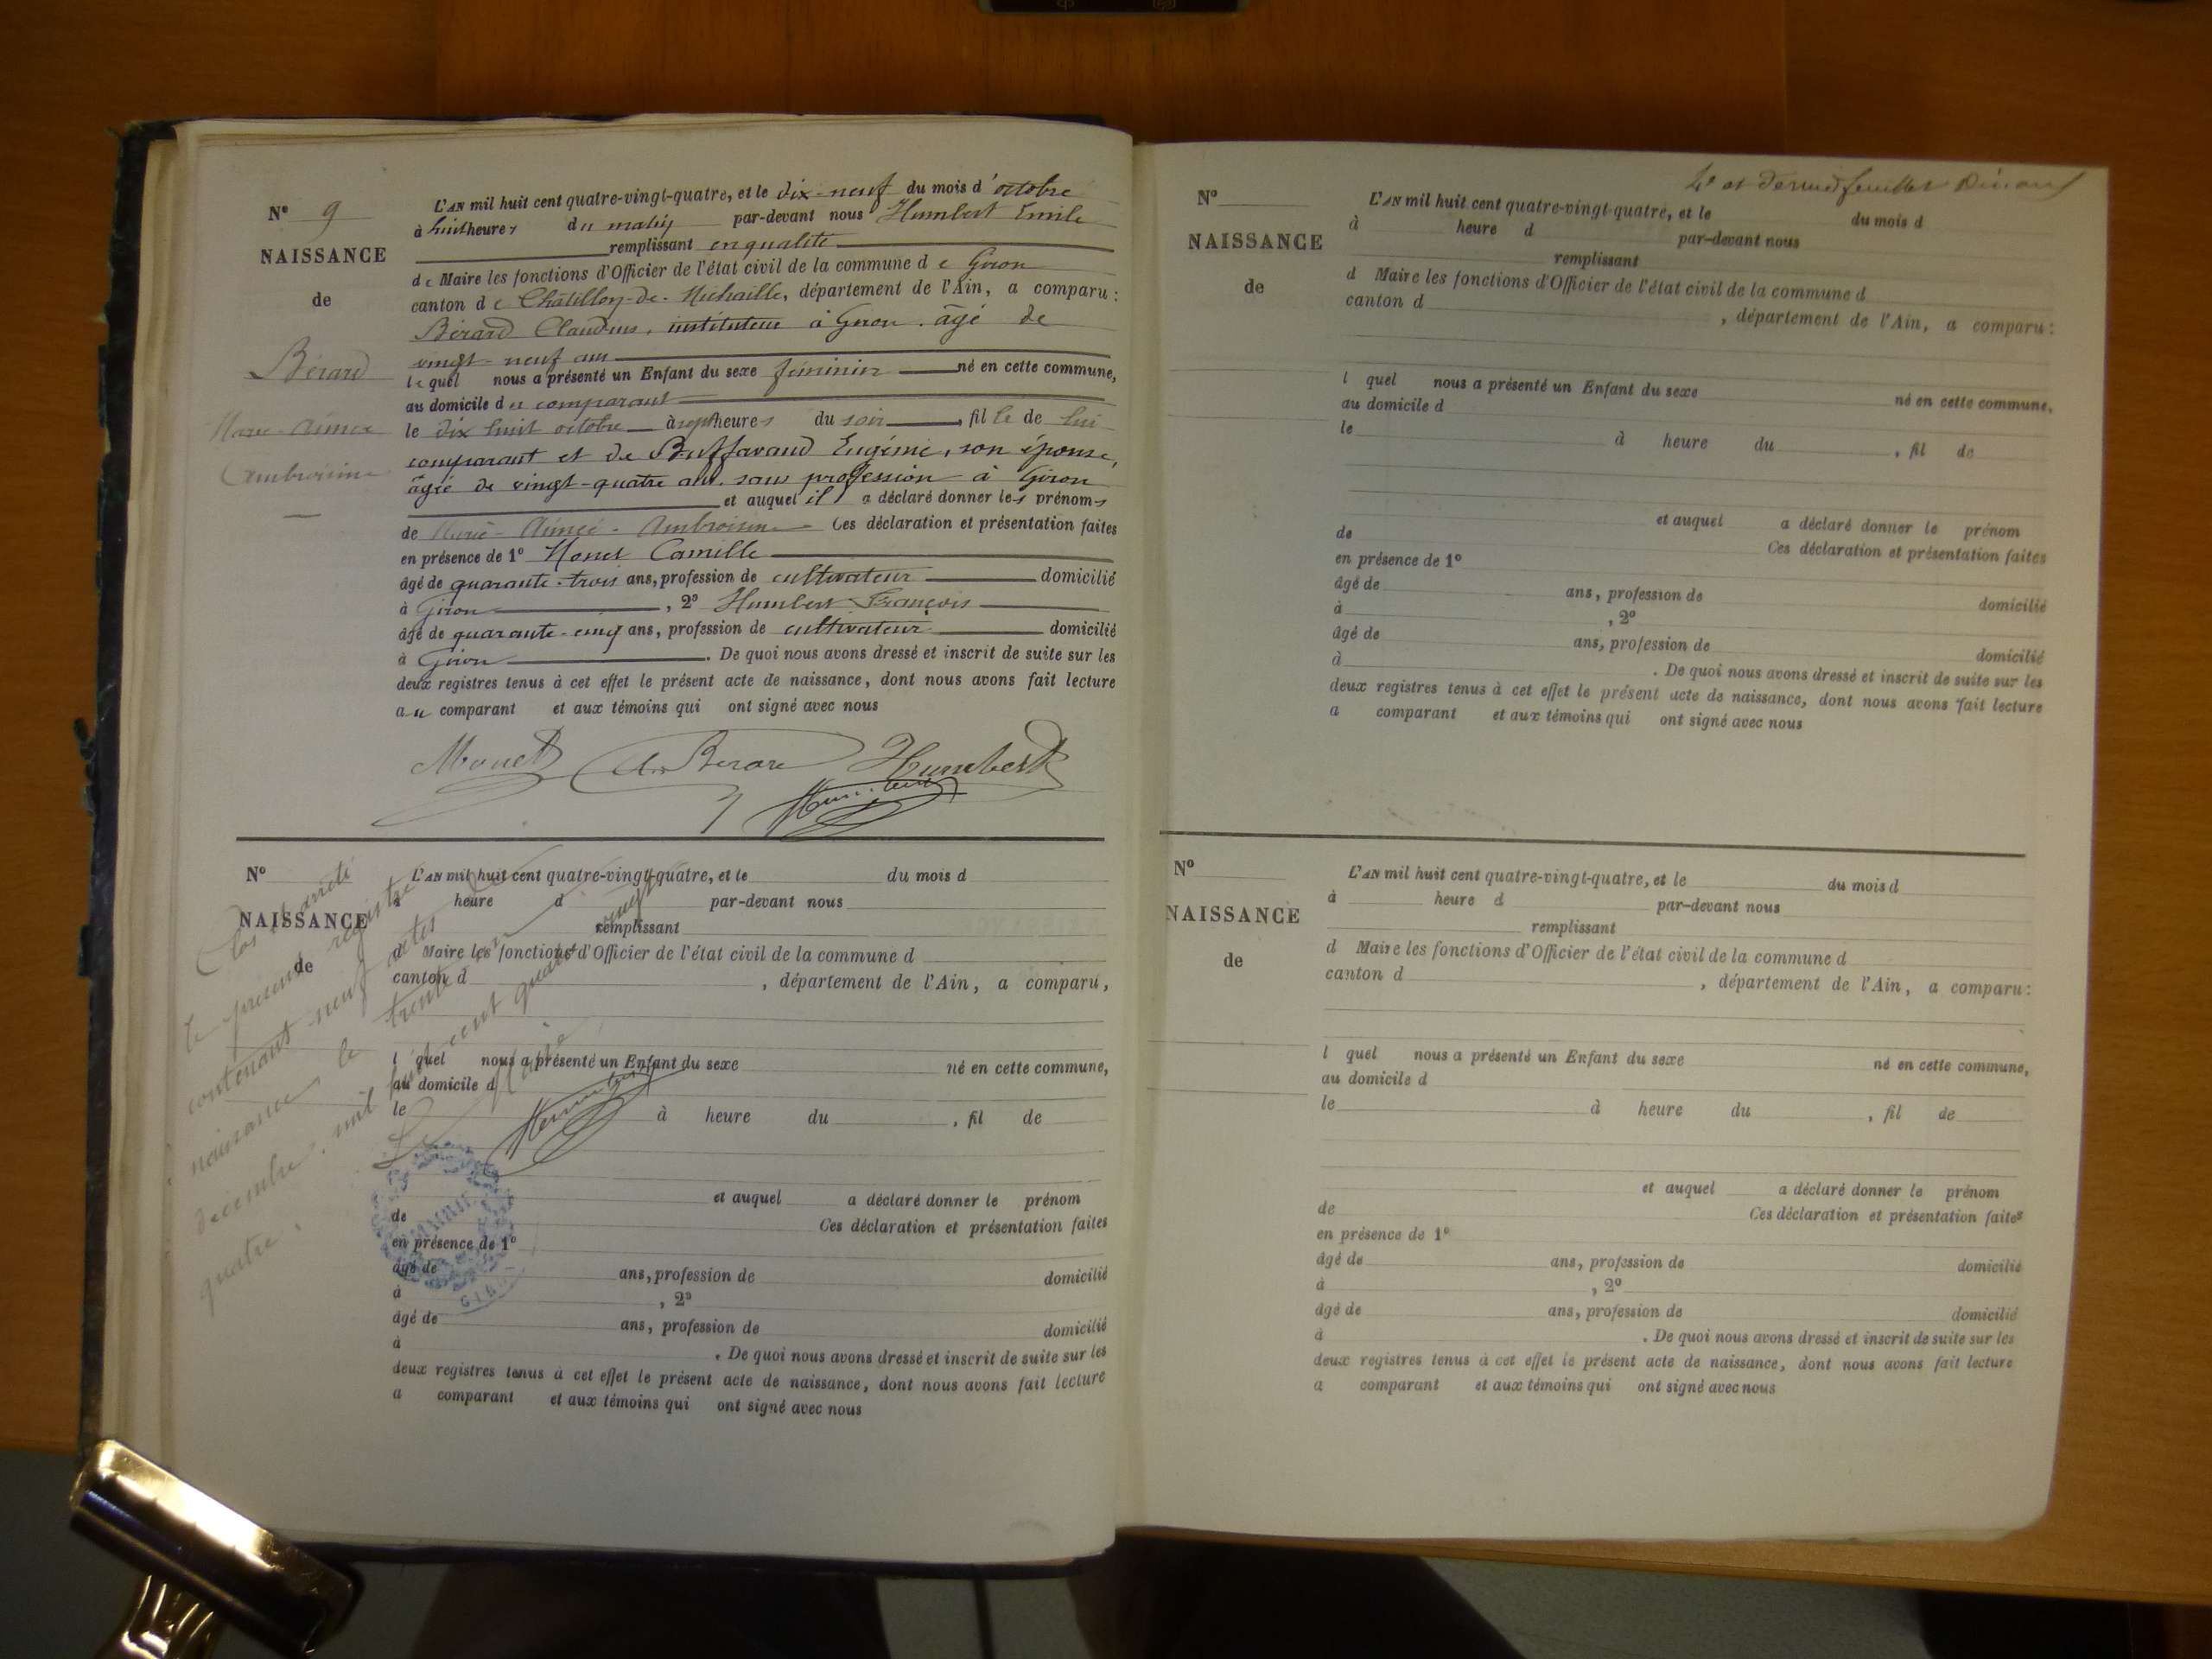 N° 9
NAISSANCE
de
Bérard
Marie-Aimée
Ambroisine
L'AN mil huit cent quatre-vingt-quatre, et le dix-neuf du mois d'octobre
à huit heures du matin par-devant nous Humbert Emile
remplissant en qualité
de Maire les fonctions d'Officier de l'état civil de la commune de Giron
canton de Châtillon-de-Michaille, département de l'Ain, a comparu :
Bérard Claudius, instituteur à Giron. âgé de
vingt-neuf ans
lequel nous a présenté un Enfant du sexe féminin né en cette commune,
au domicile du comparant
le dix huit octobre à sept heures du soir, fille de lui
comparant et de Buffavand Eugénie, son épouse,
âgée de vingt-quatre ans. sans profession à Giron
et auquel il a déclaré donner les prénoms
de Marie-Aimée-Ambroisine Ces déclaration et présentation faites
en présence de 1° Monet Camille
âgé de quarante-trois ans, profession de cultivateur domicilié
à Giron, 2° Humbert François
âgé de quarante-cinq ans, profession de cultivateur domicilié
à Giron. De quoi nous avons dressé et inscrit de suite sur les
deux registres tenus à cet effet le présent acte de naissance, dont nous avons fait lecture
au comparant et aux témoins qui ont signé avec nous
Monet Bérard Humbert
Humbert
N°
NAISSANCE
de
L'AN mil huit cent quatre-vingt-quatre, et le du mois d
à heure d par-devant nous
remplissant
d Maire les fonctions d'Officier de l'état civil de la commune d
canton d , département de l'Ain, a comparu,
l quel nous a présenté un Enfant du sexe né en cette commune,
au domicile d
le à heure du , fil de
et auquel a déclaré donner le prénom
de Ces déclaration et présentation faites
en présence de 1°
âgé de ans, profession de domicilié
à , 2°
âgé de ans, profession de domicilié
à . De quoi nous avons dressé et inscrit de suite sur les
deux registres tenus à cet effet le présent acte de naissance, dont nous avons fait lecture
a comparant et aux témoins qui ont signé avec nous
Clos et arrêté
le présent registre
contenant neuf actes de
naissance le trente un
décembre mil huit cent quatre vingt
quatre.
Le Maire
Humbert
MAIRIE
4e et dernier feuillet
N°
NAISSANCE
de
L'AN mil huit cent quatre-vingt-quatre, et le du mois d
à heure d par-devant nous
remplissant
d Maire les fonctions d'Officier de l'état civil de la commune d
canton d , département de l'Ain, a comparu :
l quel nous a présenté un Enfant du sexe né en cette commune,
au domicile d
le à heure du , fil de
et auquel a déclaré donner le prénom
de Ces déclaration et présentation faites
en présence de 1°
âgé de ans, profession de domicilié
à , 2°
âgé de ans, profession de domicilié
à . De quoi nous avons dressé et inscrit de suite sur les
deux registres tenus à cet effet le présent acte de naissance, dont nous avons fait lecture
a comparant et aux témoins qui ont signé avec nous
N°
NAISSANCE
de
L'AN mil huit cent quatre-vingt-quatre, et le du mois d
à heure d par-devant nous
remplissant
d Maire les fonctions d'Officier de l'état civil de la commune d
canton d , département de l'Ain, a comparu :
l quel nous a présenté un Enfant du sexe né en cette commune,
au domicile d
le à heure du , fil de
et auquel a déclaré donner le prénom
de Ces déclaration et présentation faites
en présence de 1°
âgé de ans, profession de domicilié
à , 2°
âgé de ans, profession de domicilié
à . De quoi nous avons dressé et inscrit de suite sur les
deux registres tenus à cet effet le présent acte de naissance, dont nous avons fait lecture
a comparant et aux témoins qui ont signé avec nous